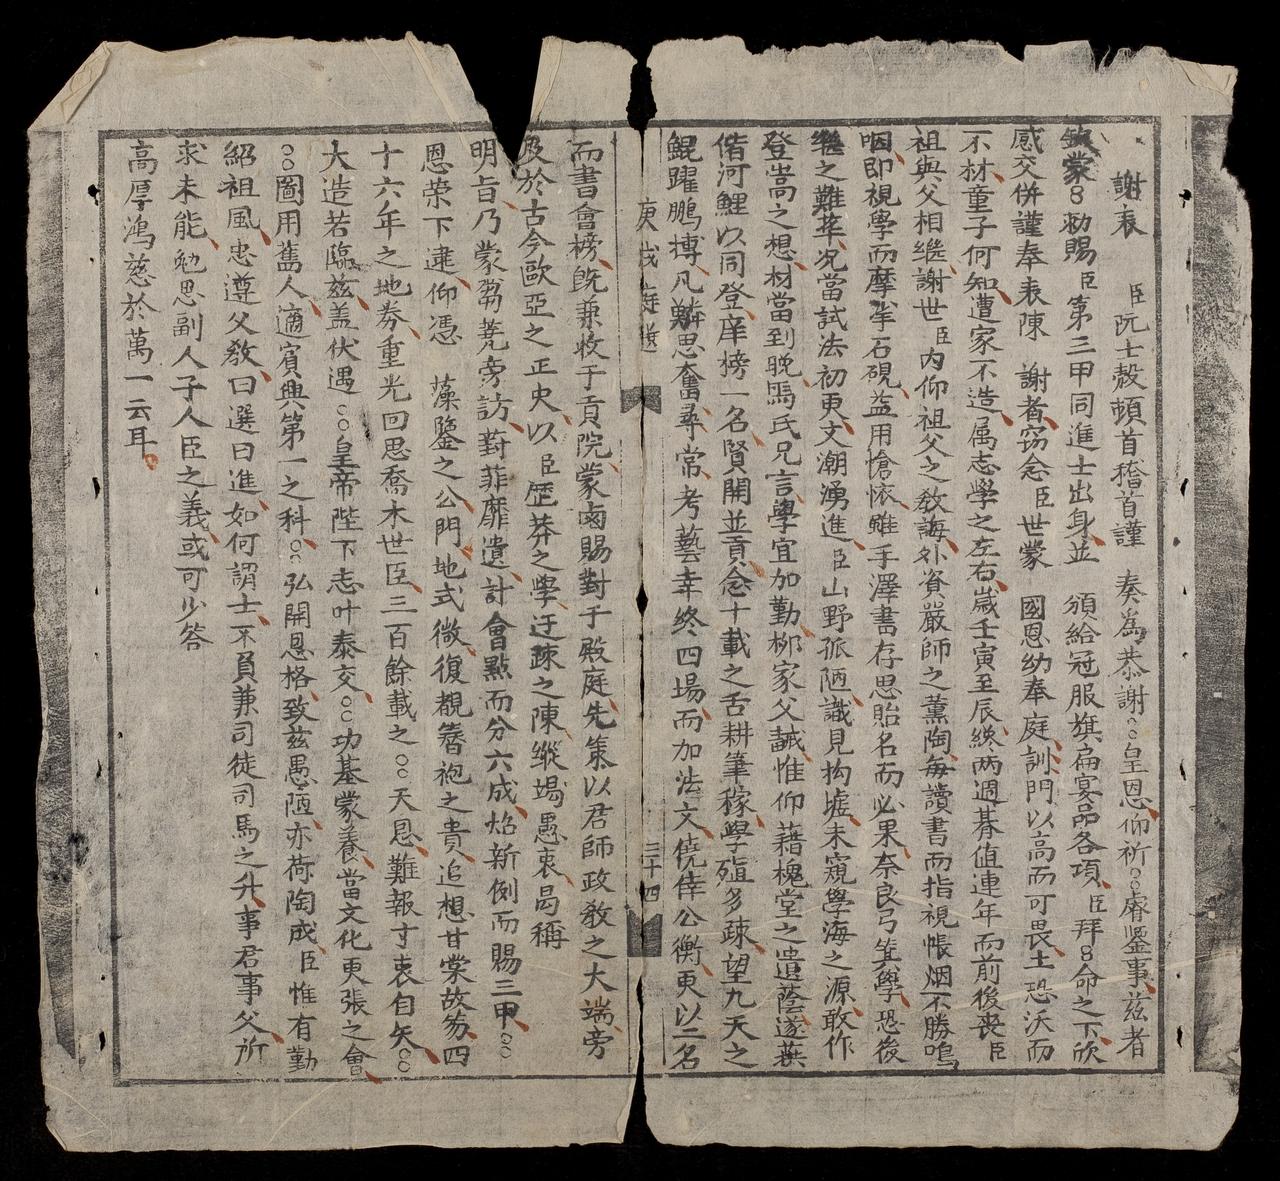 謝表 臣阮士慤頓首稽首謹 奏爲恭謝○○皇恩仰祈○○睿鑒事兹者
欽蒙○○勑賜臣第三甲同進士出身並 頒給冠服旗扁宴品各項臣拜○○命之下欣
感交併謹奉表陳 謝者窃念臣世蒙 國恩幼奉庭訓門以高而可畏土恐沃而
不材童子何知遭家不造属志學之左右歲壬寅至辰终两週朞值連年而前後喪臣
祖與父相继謝世臣内仰祖父之敎誨外資嚴師之薰陶每讀書而指視帳烟不勝鳴
咽即視學而摩挲石硯益用愴懐雖手澤書存思貽名而必果奈良弓箕學恐後
繼之難萃况當試法初更文潮湧進臣山野孤陋識見拘墟未窺學海之源敢作
登嵩之想材當到晚馬氏兄言學宜加勤柳家父誡惟仰藉槐堂之遺蔭遂䕃
偕河鯉以同登庠榜一名賢開並貢念十載之舌耕筆稼學殖多疎望九天之
鯤躍鵬搏凡鱗思奮尋常考藝幸终四場而加法文僥倖公衡更以二名
庚戌庭 三十四
而書會榜旣兼收于貢院蒙鹵賜對于殿庭先策以君師政敎之大端旁
及於古今歐亞之正史以臣歴莽之學迂疎之陳縱竭愚衷曷稱
明旨乃蒙芻蕘旁訪葑菲靡遺計會點而分六成焰新例而賜三甲○○
恩荣下逮仰憑 藻鑒之公門地式微復覩簪袍之貴追想甘棠故笏四
十六年之地券重光回思喬木世臣三百餘載之○○天恩難報寸衷自矢○○
大造若臨兹盖伏遇○○皇帝陛下志叶泰交○○功基蒙養當文化更張之會
○○圖用舊人適賓興第一之科○○弘開恩格致兹愚陋亦荷陶成臣惟有勤
紹祖風忠遵父敎曰選曰進如何謂士不負兼司徒司馬之升事君事父所
求未能勉思副人子人臣之義或可少答
高厚鴻慈於萬一云耳